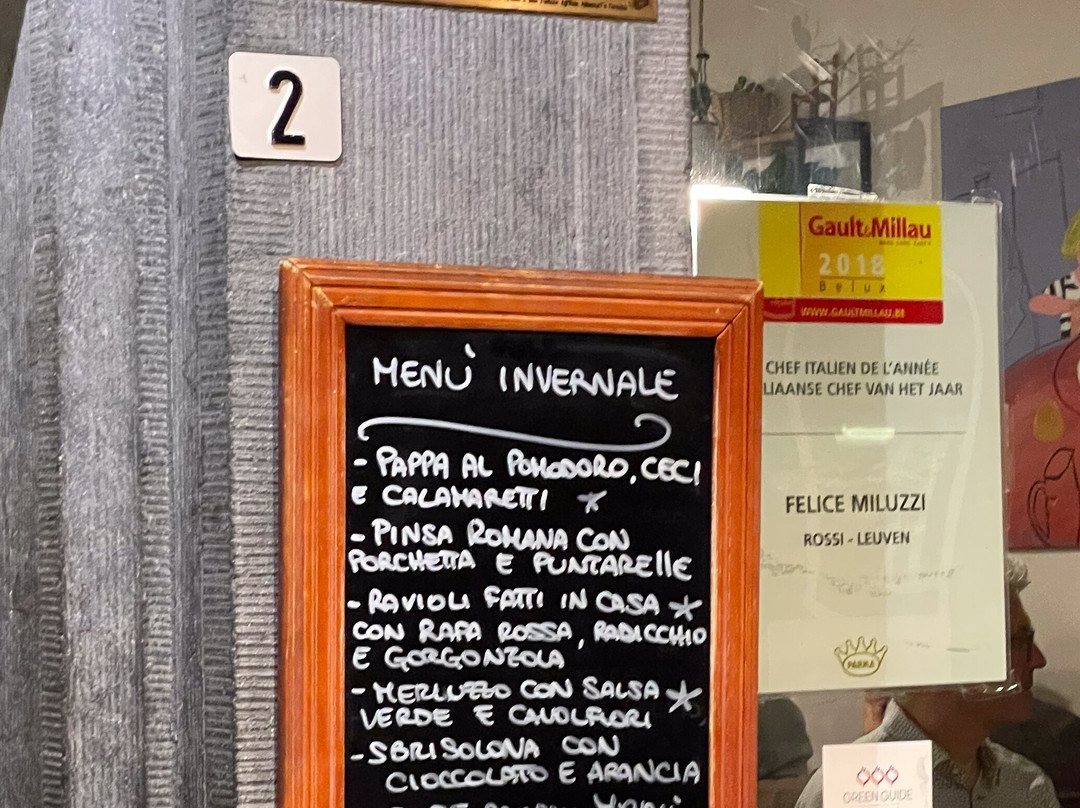 2
MENÙ INVERNALE
- PAPPA AL POMODORO, CECI
E CALAMARETTI *
- PINSA ROMANA CON
PORCHETTA E PUNTARELLE
- RAVIOLI FATTI IN CASA *
CON RAPA ROSSA, RADICCHIO
E GORGONZOLA
- MERLUZZO CON SALSA *
VERDE E CAVOLFIORI
- SBRISOLONA CON
CIOCCOLATO E ARANCIA
Gault&Millau
2018
Belux
WWW.GAULTMILLAU.BE
CHEF ITALIEN DE L'ANNÉE
LIAANSE CHEF VAN HET JAAR
FELICE MILUZZI
ROSSI - LEUVEN
PARMA
GREEN GUIDE